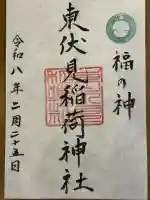 福の神
東伏見稲荷神社
令和八年二月二十五日